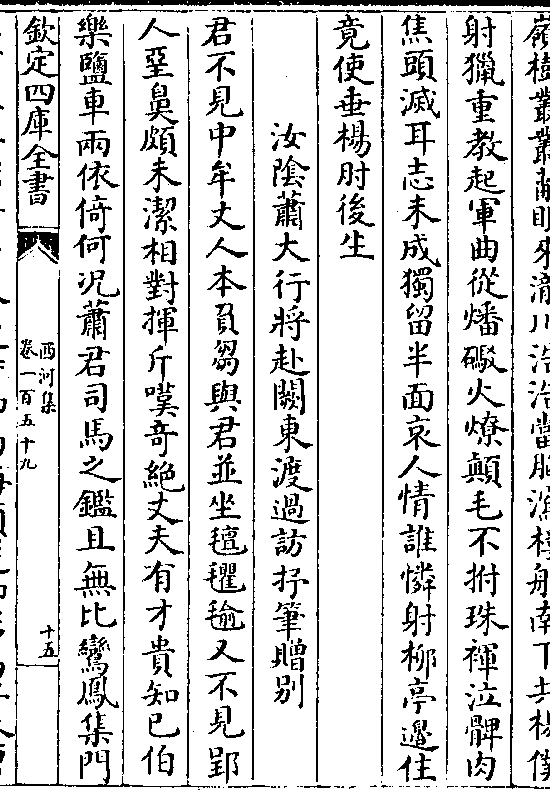 嶺樹叢叢蔽眼來瀧川浩浩當胸瀉樓船南下共楊僕
射獵重教起軍曲從燔礮火燎顛毛不拊珠褌泣髀肉
焦頭滅耳志未成獨留半面哀人情誰憐射柳亭邊住
竟使垂楊肘後生
汝陰蕭大行將赴闕東渡過訪抒筆贈别
君不見中牟丈人本負芻與君並坐氊氍毹又不見郢
人堊鼻頗未潔相對揮斤嘆奇絶丈夫有才貴知已伯
樂鹽車兩依倚何况蕭君司馬之鑑且無比鸞鳳集門
欽定四庫全書
西河集
卷一百五十九
十五